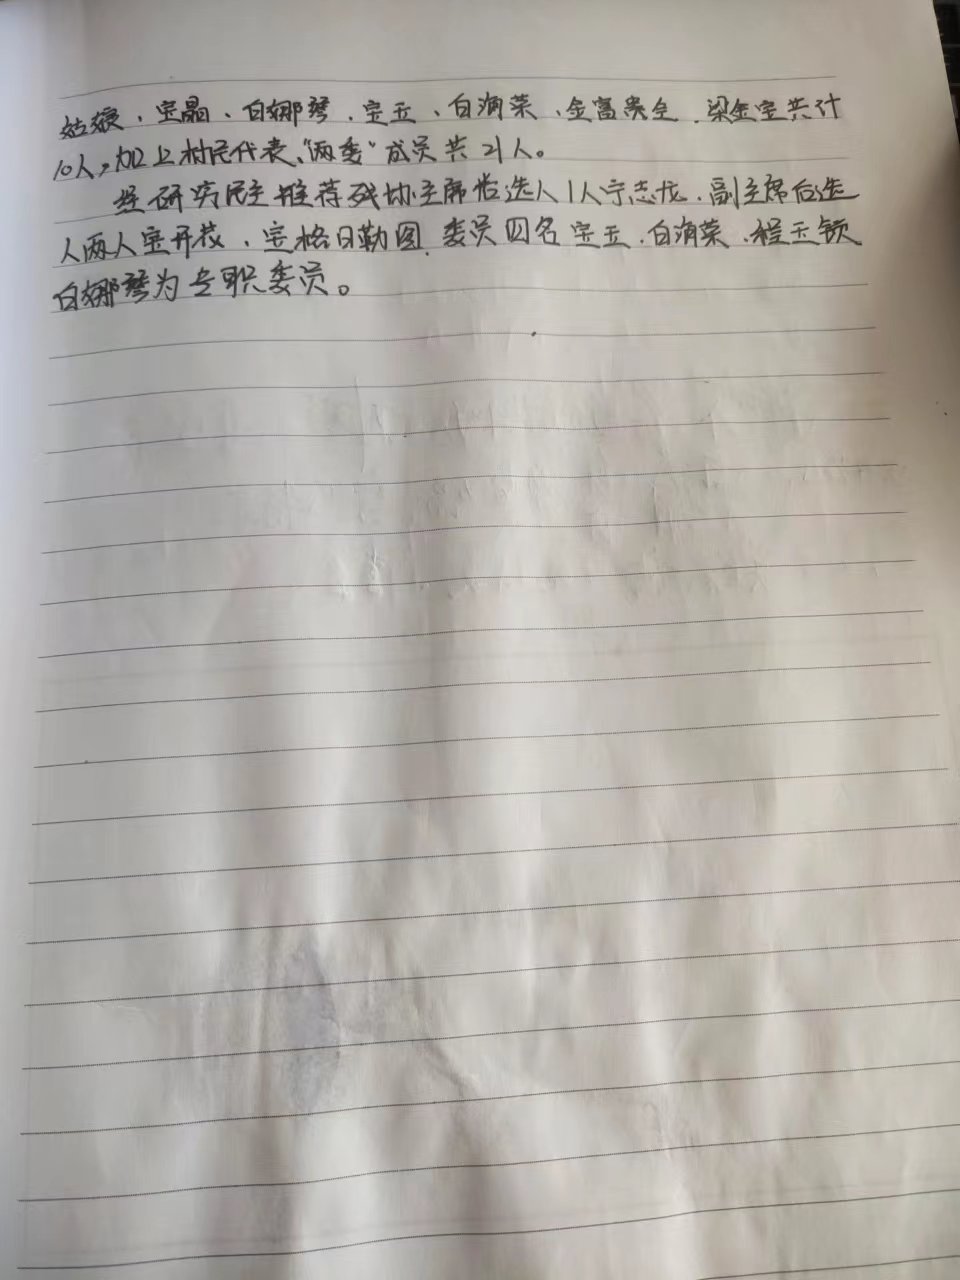 姑娘、宝晶、白娜琴、宝玉、白润菜、金富贵全、梁金宝共计
10人,加上村民代表、“两委”成员共21人。
经研究民主推荐残协主席候选人1人宁志龙、副主席后选
人两人宝开花、宝格日勒图、委员四名宝玉、白润菜、程玉锁
白娜琴为专职委员。